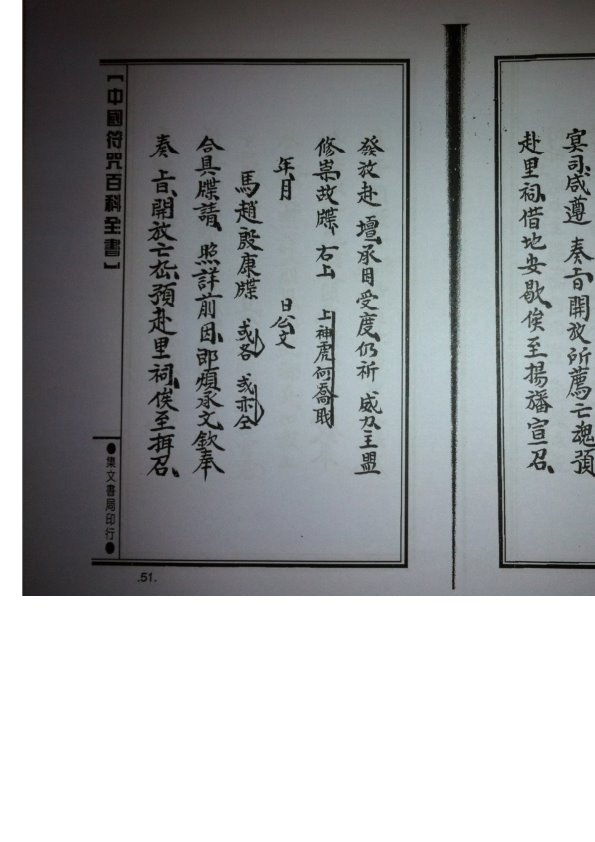 冥司咸遵 奏旨開放所薦亡魂預
赴里祠借地安歇俟至揚旛宣召
發放赴 壇承因受度仍祈 威力主盟
修崇故牒 右上 上神虎何喬
年月 日公文
馬趙殷康牒 或各 或亦仝
合具牒請 照詳前因即煩承文欽奉
奏 旨開放亡 預赴里祠俟至 召
【中國符咒百科全書】
●集文書局印行●
.51.